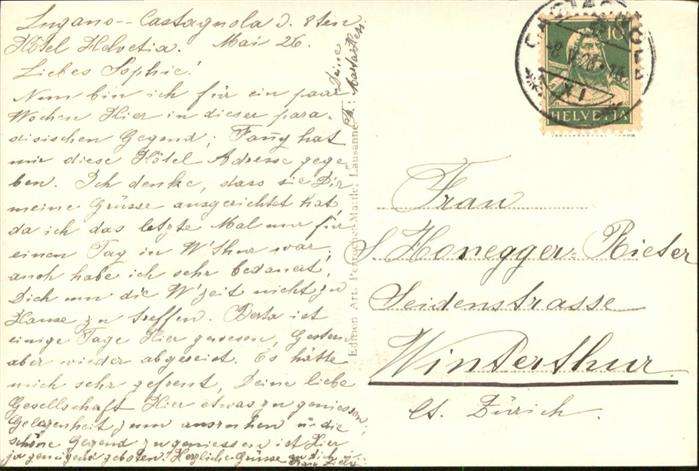 Lugano-Castagnola d. 8ten
Hôtel Helvetia. Mai 26.
Liebes Sophie!
Nun bin ich für ein paar
Wochen hier in dieser para-
disischen Gegend; Fanÿ hat
mir diese Hôtel Adresse gege-
ben. Ich denke, dass sie Dir
meine Grüsse ausgerichtet hat
da ich das letzte Mal nur für
einen Tag in W'thur war,
auch habe ich sehr bedauert,
Dich um die W'zeit nicht zu
Hause zu treffen. Berta ist
einige Tage hier gewesen, Gestern
aber wieder abgereist. Es hätte
mich sehr gefreut, Deine liebe
Gesellschaft hier etwas zu geniessen,
Gelegenheit zum ausruhen u. die
schöne Gegend zu geniessen ist hier
ja genügend geboten. Herzliche Grüsse an dich u.
Deine
CASTAGNOLA
10
HELVETIA
Edition Art. Lausanne
Frau
S. Honegger-Rieter
Seidenstrasse
Winterthur.
Ct. Zürich.